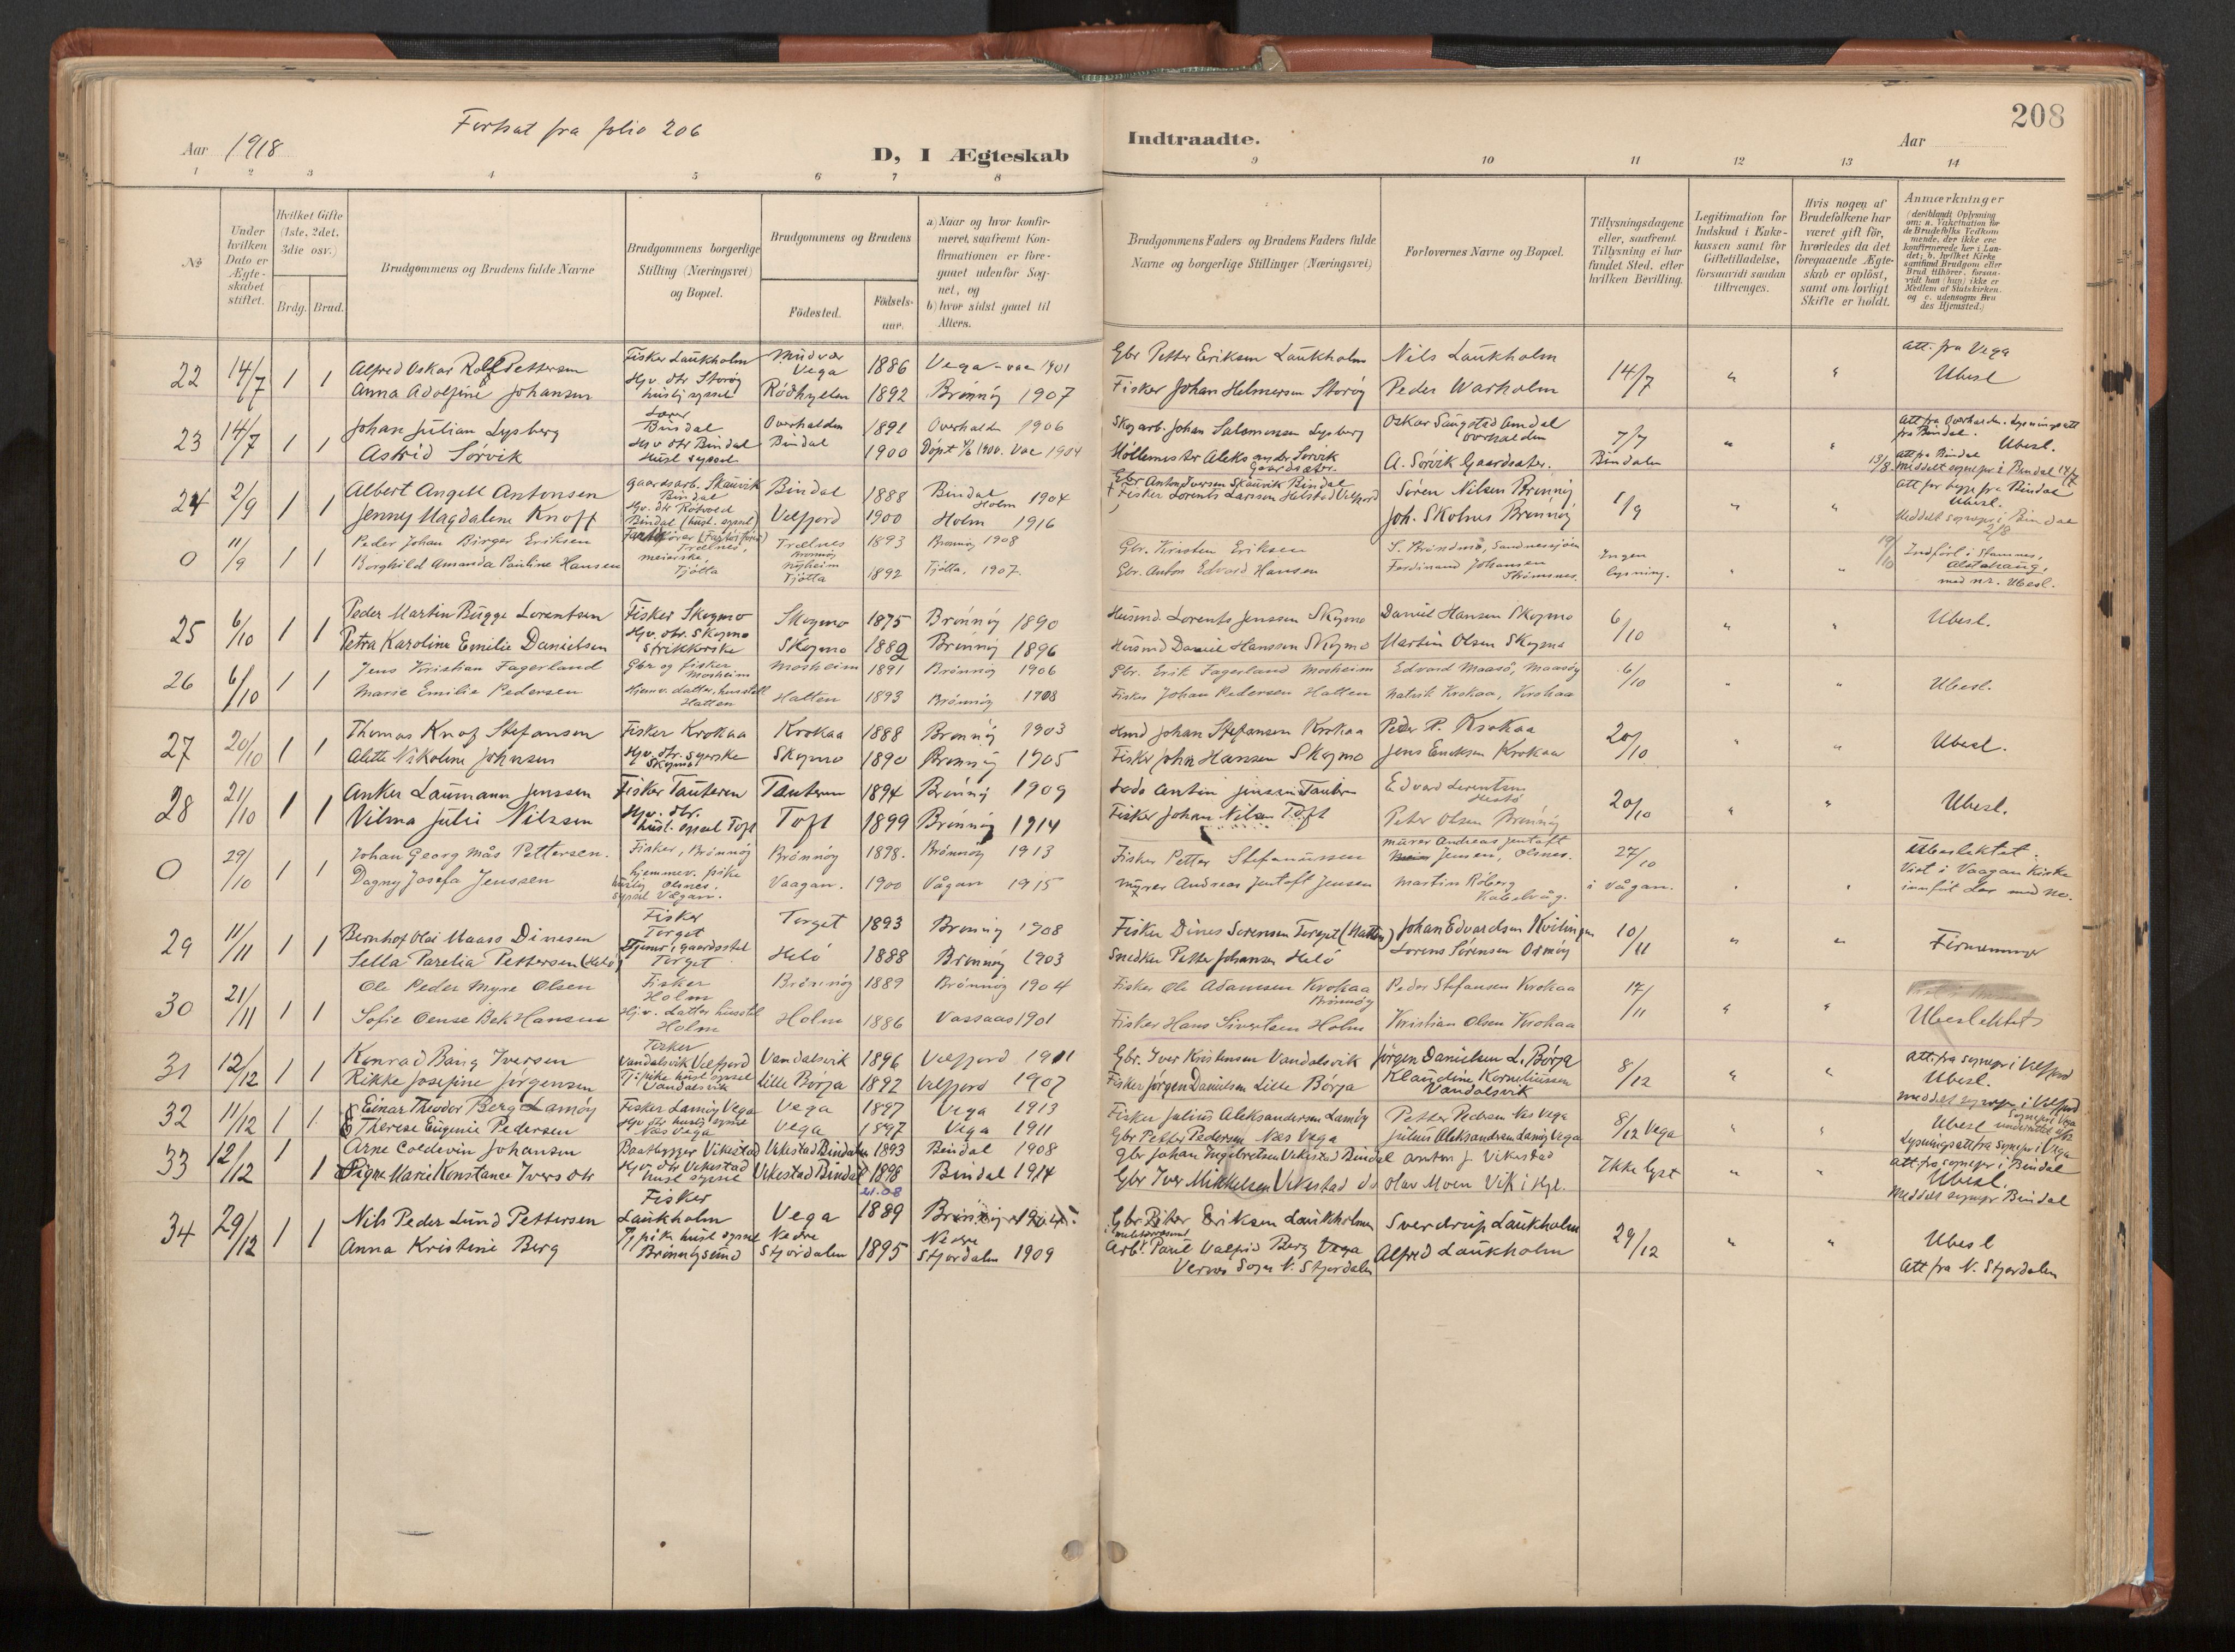 208
Fortsat fra folio 206
Aar 1918
D, I Ægteskab
Indtraadte.
Aar
1 2 3 4 5 6 7 8 9 10 11 12 13 14
№
Under hvilken Dato er Ægteskabet stiftet.
Hvilket Gifte (1ste, 2det, 3die osv.)
Brdg. Brud.
Brudgommens og Brudens fulde Navne
Brudgommens borgerlige Stilling (Næringsvei) og Bopæl.
Brudgommens og Brudens
Födested.
Födselsaar.
a) Naar og hvor konfirmeret, saafremt Konfirmationen er foregaaet udenfor Sognet, og
b) hvor sidst gaaet til Alters.
Brudgommens Faders og Brudens Faders fulde Navne og borgerlige Stillinger (Næringsvei)
Forlovernes Navne og Bopæl.
Tillysningsdagene eller, saafremt Tillysning ei har fundet Sted, efter hvilken Bevilling.
Legitimation for Indskud i Enkekassen samt for Giftetilladelse, forsaavidt saadan tiltrænges.
Hvis nogen af Brudefolkene har været gift för, hvorledes da det foregaaende Ægteskab er oplöst, samt om lovligt Skifte er holdt.
Anmærkninger
22 14/7 1 1
Alfred Oskar Rolf Pettersen Fisker Laukholm Mudvær Vega 1886 Vega - vac 1901 Gbr Petter Eriksen Laukholm Nils Laukholm 14/7 " " Att. fra Vega
Anna Adolfine Johansen Hjv. dtr Storøy huslig syssel Rödhyllen 1892 Brönnöy 1907 Fisker Johan Helmersen Storöy Peder Warholm Ubesl
23 14/7 1 1
Johan Julian Lysberg Bindal Overhalden 1891 Overhalden 1906 Skogarb. Johan Salomonsen Lysberg Oskar Saugstad Amdal Overhalden 7/7 Bindalen " " Att fra Overhalden. Lysningsatt fra Bindal. Ubesl.
Astrid Sörvik Hjv dtr Bindal Husl syssel Bindal 1900 Döpt 1900. Vac 1904 Möllemester Aleksander Sörvik Gaardsæter. A. Sörvik Gaardsæter.
13/8. Meddelt sognepr i Bindal
24 2/9 1 1
Albert Angell Antonsen Gaardsarb. Skauvik Bindal Bindal 1888 Bindal Holm 1904 Gbr Anton Iversen Skauvik Bindal Sören Nilsen Brönnöy 1/9 " " Att for begge fra Bindal Ubesl.
Jenny Magdalene Knoff Hjv. dtr Bindal (husl. syssel) Velfjord 1900 Holm 1916 Fisker Lorents Larssen Helstad Velfjord Joh. Skolnes Brönnöy Meddelt sognepr i Bindal 2/8
0 11/9 1 1
Peder Johan Birger Eriksen Trælnes, Trælnes Brönnöy 1893 Brönnöy 1908 Gbr. Kristen Eriksen S. Bröndmo, Sandnessjöen Ingen lysning. " " 19/10 Indfört i Stamnes, Alstahaug, med nr. Ubesl.
Borghild Amanda Pauline Hansen meierske Tjötta Nyheim Tjötta 1892 Tjötta. 1907. Gbr. Anton Edvard Hansen Ferdinand Johansen Strömsnes.
25 6/10 1 1
Peder Martin Bugge Lorentsen Fisker Skogmo Skogmo 1875 Brönnöy 1890 Husmd Lorents Jenssen Skogmo Daniel Hansen Skogmo 6/10 " " Ubesl.
Petra Karoline Emilie Danielsen Hjv. dtr. Skogmo Strikkerske Skogmo 1882 Brönnöy 1896 Husmd Daniel Hanssen Skogmo Martin Olsen Skogmo
26 6/10 1 1
Jens Kristian Fagerland Gbr og fisker Mosheim Mosheim 1891 Brönnöy 1906 Gbr. Erik Fagerland Mosheim Edvard Maasö, Maasöy 6/10 " " Ubesl.
Marie Emilie Pedersen Hjemv. datter, husstell Hatten Hatten 1893 Brönnöy 1908 Fisker Johan Pedersen Hatten Natvik Krokaa, Krokaa
27 20/10 1 1
Thomas Knof Stefansen Fisker Krokaa Krokaa 1888 Brönnöy 1903 Hmd Johan Stefansen Krokaa Peder P. Krokaa 20/10 " " Ubesl.
Alette Nikoline Johnsen Hjv. dtr. syerske Skogmo Skogmo 1890 Brönnöy 1905 Fisker John Hanssen Skogmo Jens Encksen Krokaa
28 21/10 1 1
Anker Laumann Jenssen Fisker Tauteren Tauteren 1894 Brönnöy 1909 Anton Jensen Edvard Lorentsen 20/10 " " Ubesl.
Vilma Julie Nilssen Hjv. dtr. husl. syssel Toft Toft 1899 Brönnöy 1914 Fisker Johan Nilsen Toft Peter Olsen Brönnöy
0 29/10 1 1
Johan Georg Mås Pettersen. Fisker, Brönnöy Brönnöy 1898. Brönnöy 1913 Fisker Petter Stefanussen murer Andreas Jentoft Jensen, Olsnes. 27/10 i Vågan. " " Ubeslektet. Viet i Vaagan Kirke
Dagny Josefa Jenssen hjemmev. pike huslig syssel Olsnes. Vågan. Vaagan. 1900 Vågan 1915 Murer Andreas Jentoft Jensen Martin Roberg Kabelvåg. innfört der med no.
29 11/11 1 1
Bernhof Olai Maass Dinesen Fisker Torget Torget 1893 Brönnöy 1908 Fisker Dines Sorensen Torget (Hatten) Johan Edvardsen Kvilingen 10/11 " " Firmenninger
Sella Parelia Pettersen (Helö) Torget Helö 1888 Brönnöy 1903 Snedker Petter Johansen Helö Lorens Sörensen
30 21/11 1 1
Ole Peder Myre Olsen Fisker Holm Brönnöy 1889 Brönnöy 1904 Fisker Ole Adamsen Krokaa Brönnöy Peder Stefansen Krokaa 17/11 " " Ubeslektet
Sofie Oense Bek Hansen Hjv. datter husstel Holm Holm 1886 Vassaas 1901 Fisker Hans Sivertsen Holm Kristian Olsen Krokaa
31 12/12 1 1
Konrad Bang Iversen Fisker Vandalsvik Velfjord Vandalsvik 1896 Velfjord 1911 Gbr. Iver Kristensen Vandalsvik Jörgen Danielsen L. Börja 8/12 " " Att. fra sognepr i Velfjord Ubesl.
Rikke Josefine Jörgensen Tj. pike husl syssel Vandalsvik Lille Börja 1892 Velfjord 1907 Fisker Jörgen Danielsen Lille Börja Klaudine Korneliussen Vandalsvik meddelt sognepr. i Velfjord
32 11/12 1 1
Einar Theodor Berg Lamöy Fisker Lamöy Vega Vega 1897 Vega 1913 Fisker Julius Aleksandersen Lamöy Petter Pedersen Nes Vega 8/12 Vega " " Ubesl Sognepr i Vega underrettet
Therese Eugenie Pedersen Hjv dtr huslig syssel Nes Vega Vega 1897 Vega 1911 Gbr Petter Pedersen Næs Vega Julius Aleksandersen Lamöy Vega Lysningsatt fra sognepr i Vega
33 12/12 1 1
Arne Coldevin Johansen Baatbygger Vikestad Vikestad Bindalen 1893 Bindal 1908 Gbr Johan Ingebretsen Vikestad Bindal Anton J. Vikestad Ikke lyst " " Att. fra sognepr i Bindal Ubesl.
Signe Marie Konstance Iversdtr Hjv. dtr Vikestad husl syssel Vikestad Bindal 1898 Bindal 1914 Gbr Iver Mikkelsen Vikestad do Olav Moen Vik i Hgl. Meddelt sognepr Bindal
34 29/12 1 1
Nils Peder Lund Pettersen Fisker Laukholm Vega 1889 Brönnöy 1904. Gbr Peter Eriksen Laukholmen Sverdrup Laukholm 29/12 " " Ubesl
Anna Kristine Berg Tj pik husl syssel Brönnöysund Nedre Stjördalen 1895 Nedre Stjordalen 1909 Arb. Paul Valfrid Berg Vega Alfred Laukholm Att fra N. Stjordalen
Sogn N. Stjordalen